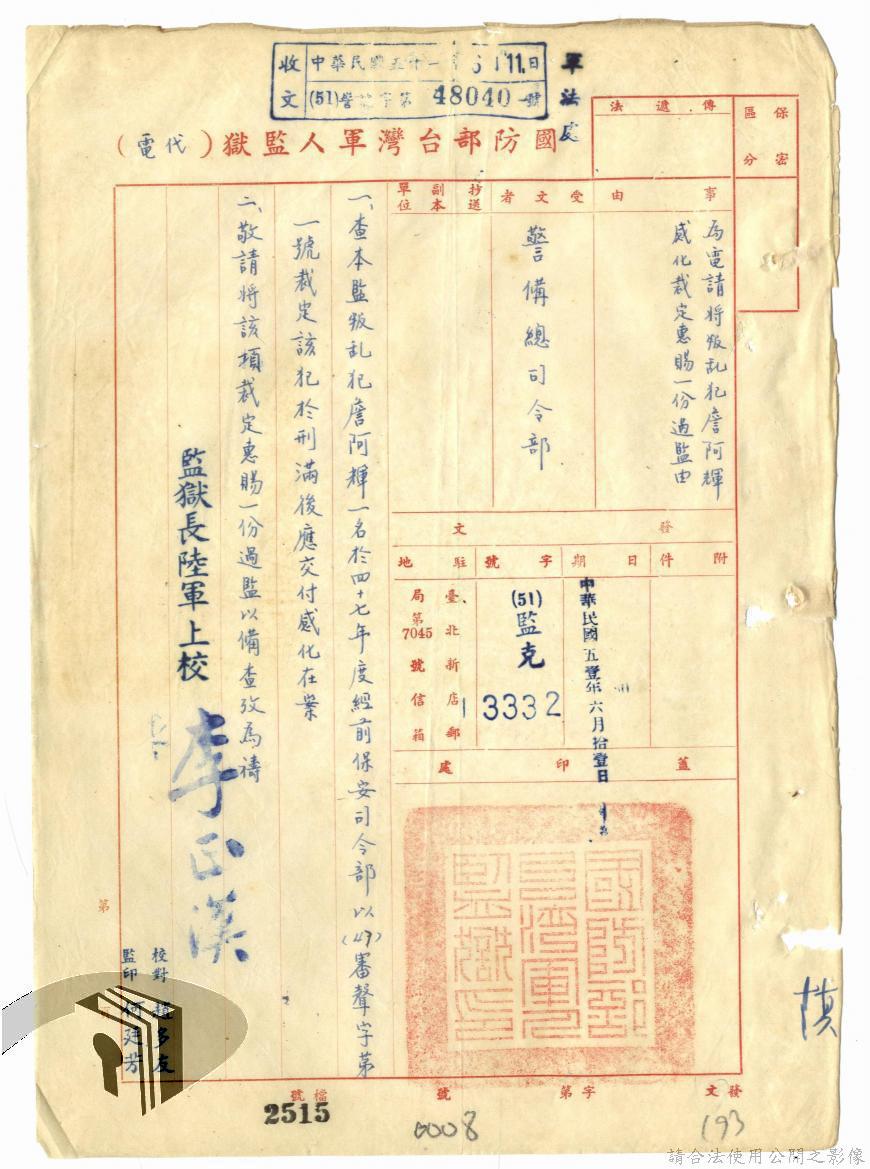 收文 中華民國五十一年6月11日
(51)警 字第48040號
軍法處
國防部台灣軍人監獄（代電）
保密區分
傳遞法
事由
為電請將叛乱犯詹阿輝
感化裁定惠賜一份過監由
受文者
警備總司令部
抄送副本單位
發文
附件
日期
中華民國五壹年六月拾壹日
字號
(51)監克
3332
駐地
臺北新店郵
局第7045號信箱
蓋印處
國防部台灣軍人監獄印
一、查本監叛乱犯詹阿輝一名於四十七年度經前保安司令部以(47)審聲字第
一號裁定該犯於刑滿後應交付感化在案
二、敬請將該項裁定惠賜一份過監以備查攷為禱
監獄長陸軍上校
李正漢
校對 趙多友
監印 何廷芳
第
發文
字第
號
檔號
2515
0008
193
請合法使用公開之影像